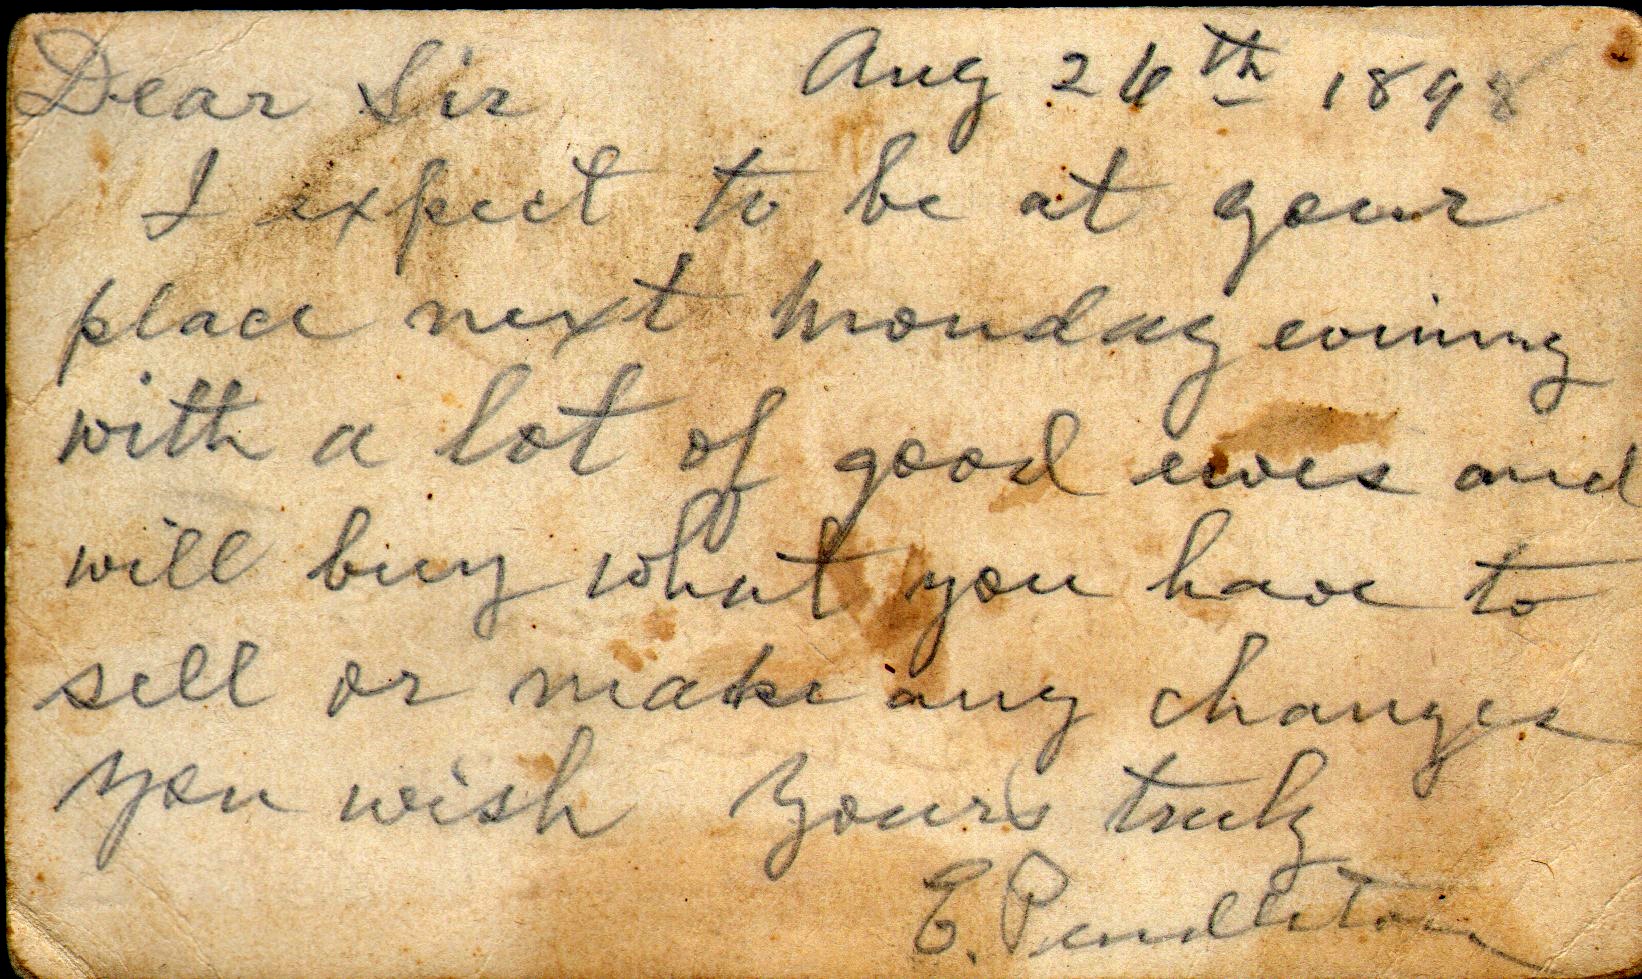 Dear Sir Aug 26th 1898
I expect to be at your
place next Monday evining
with a lot of good ewes and
will buy what you have to
sell or make any changes
you wish Yours truly
E. Pendleton